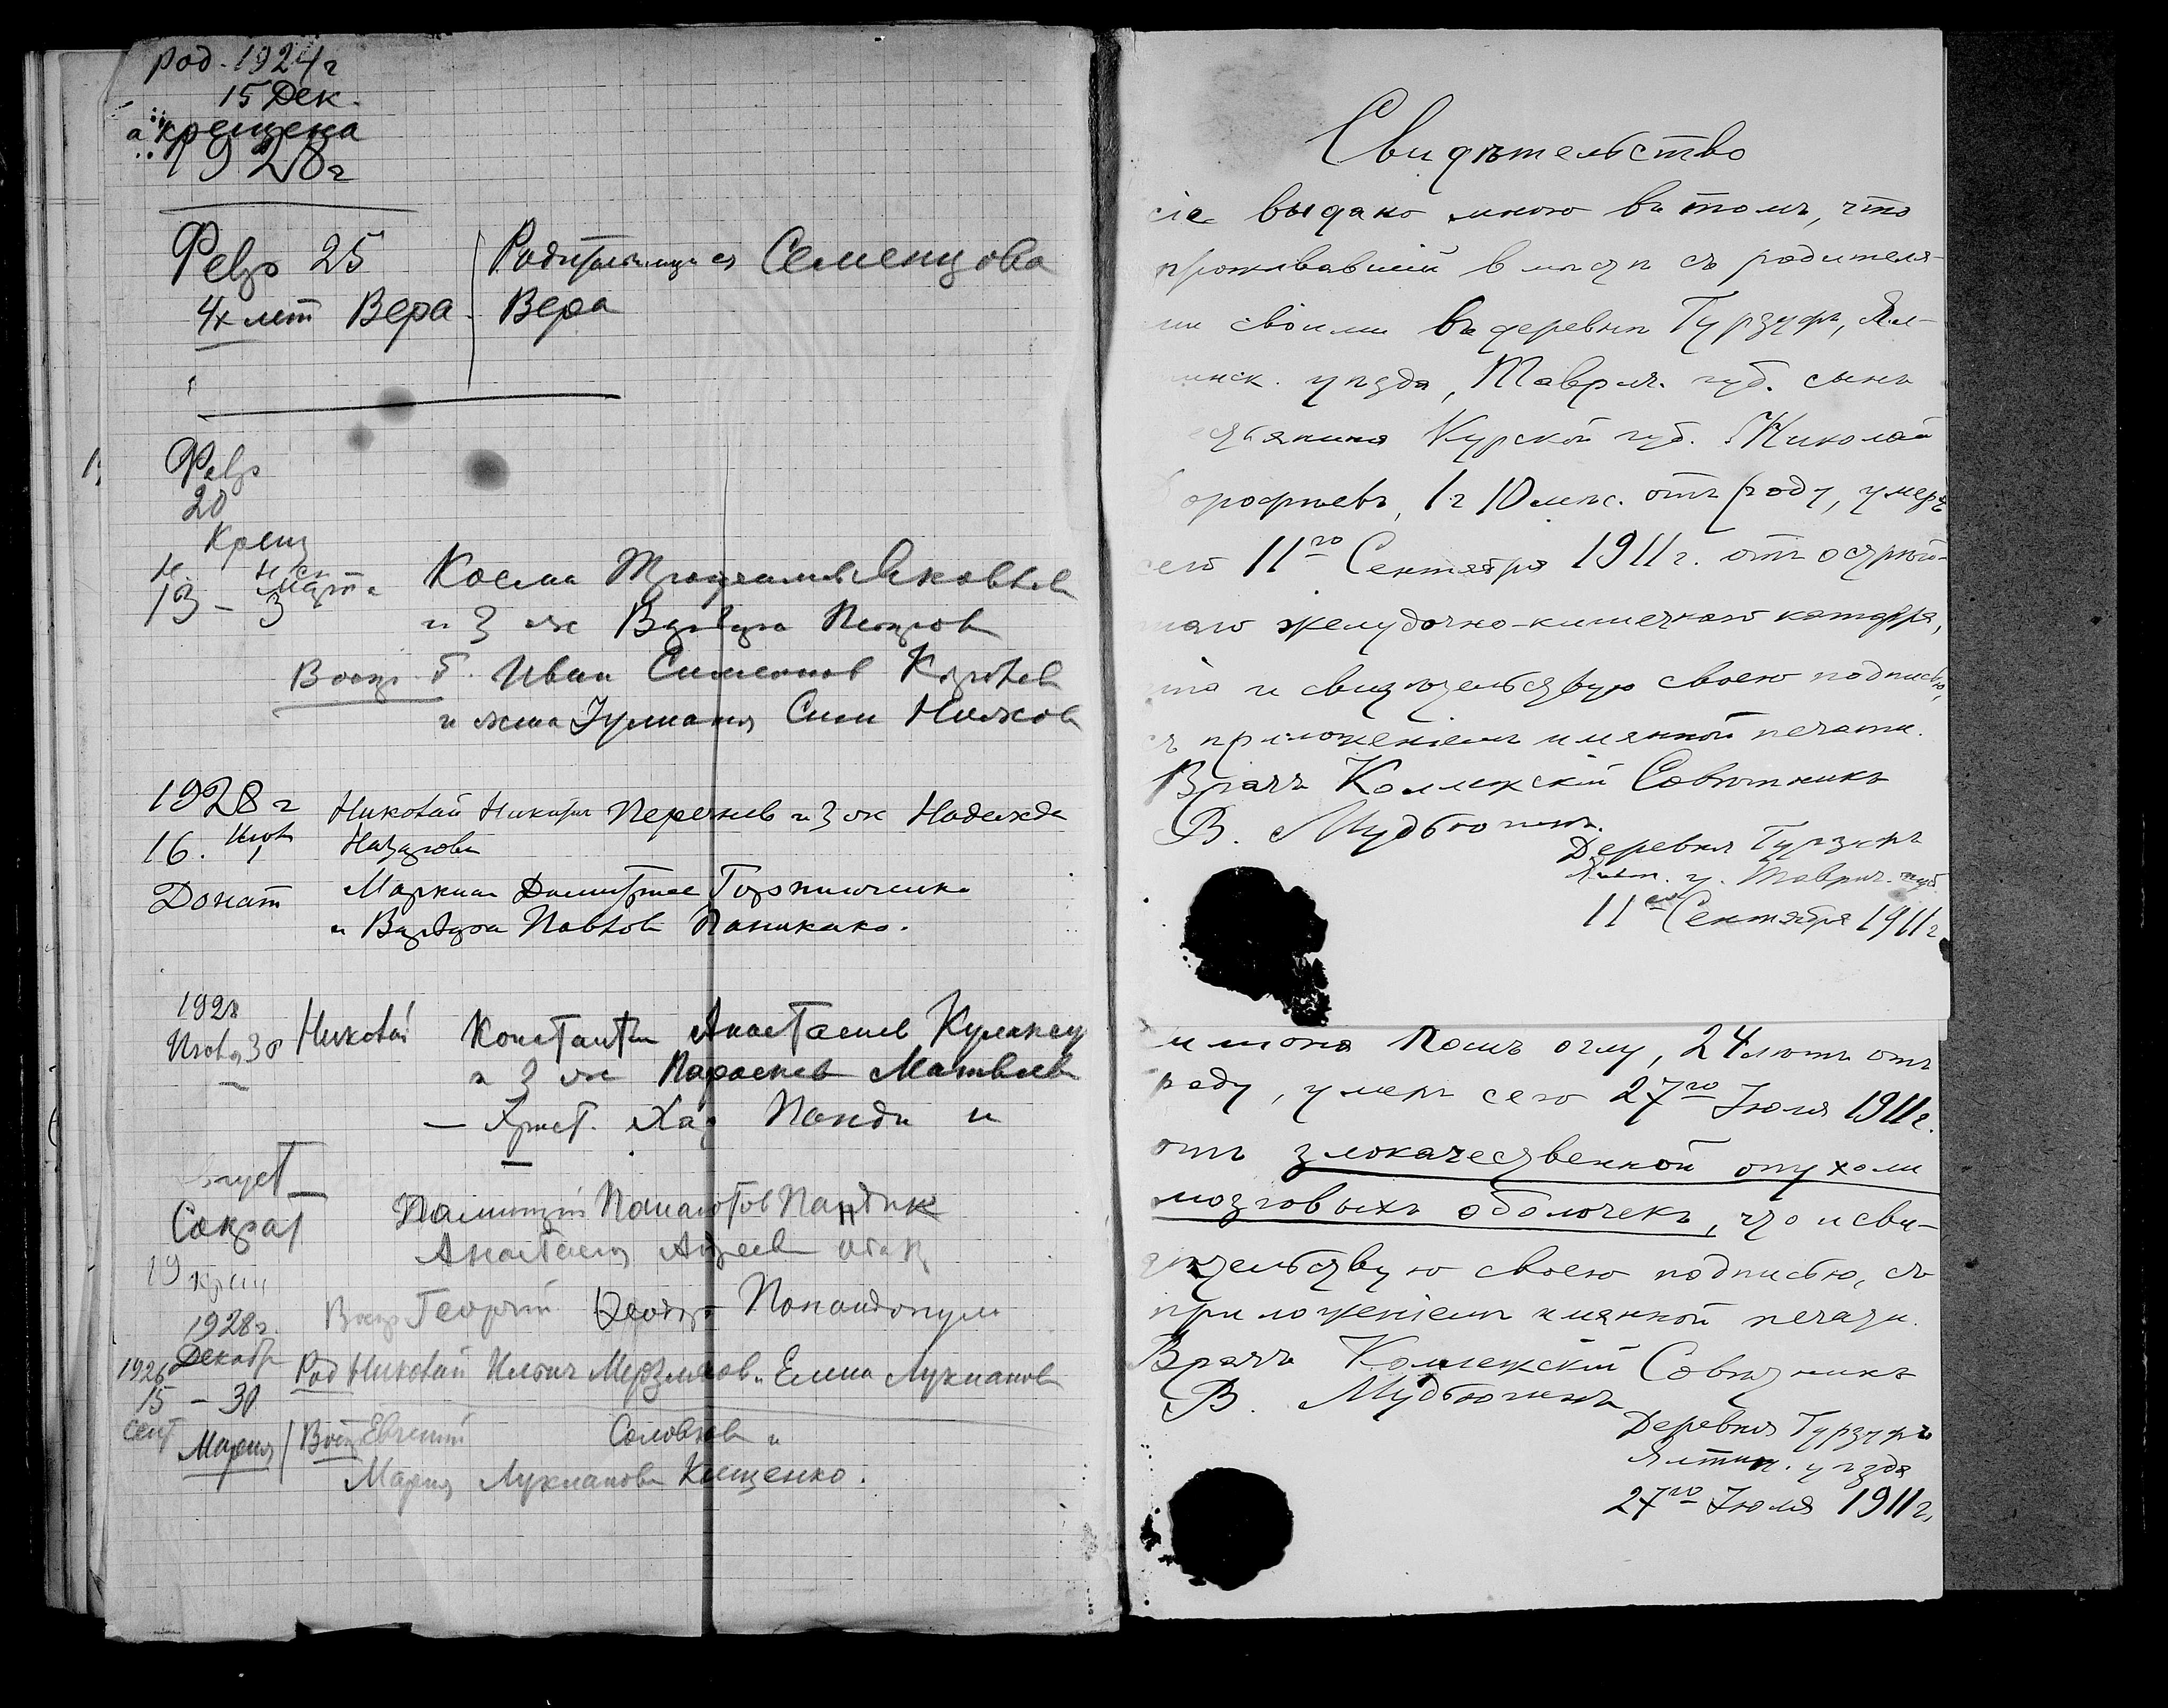 род. 1924 г
15 Дек.
а крещена
1928 г
Февр 25
4х лет Вера
Родительница Семенцова
Вера
Февр
20
Крещ
13 – 3 марта
Косма
и з ж Варвара Петров
Воспр. б. Иван Симеонов
и жена
1928 г
16. Июня
Донат
Николай Никит Переч и з ж Надежда
Назарова
Маркиан Димитриев
и Варвара Павлов Паникако.
1928
Июня 30
Николай
Константин Анастасиев
и з ж Параскев Матвеев
— Христ. Ха Панди и
Август
Сократ
19 крещ
1928 г.
Димитрий Панаютов
Анастасия Андреев
Воспр Георгий Феодор Папандопуло
Декабр
1926
15 – 30
сент
Мария
Род Николай Ильич Мерзляков и Елена Лукианова
Восп Евгений Соловьев и
Мария Лукианова Кищенко.
Свидѣтельство
сіе выдано мною въ томъ, что
проживавшій вмѣстѣ съ родителя-
ми своими въ деревнѣ Гурзуфъ, Ял-
тинск. уѣзда, Таврич. губ. сынъ
крестьянина Курской губ. Николай
Дорофѣевъ, 1 г 10 мѣс. отъ роду, умеръ
сего 11го Сентября 1911 г. отъ остро-
го желудочно-кишечнаго катарра,
что и свидѣтельствую своею подписью,
съ приложеніемъ имянной печати.
Врачъ Коллежскій Совѣтникъ
В.
Деревня Гурзуфъ
Ялт. у. Таврич. губ.
11го Сентября 1911 г.
оглу, 24 лѣтъ отъ
роду, умеръ сего 27го Іюля 1911 г.
отъ злокачественной опухоли
мозговыхъ оболочекъ, что и сви-
дѣтельствую своею подписью, съ
приложеніемъ имянной печати.
Врачъ Коллежскій Совѣтникъ
В.
Деревня Гурзуфъ
Ялтин. уѣзда
27го Іюля 1911 г.